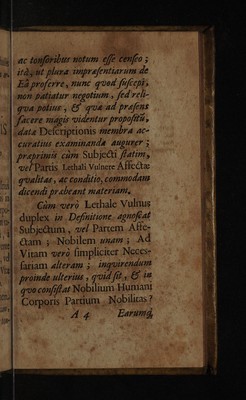 ac tonsoribus notum esse censeo ;
ità, ut plura impræsentiarum de
Eâ proferre, nunc qvod suscepi,
non patiatur negotium , sed reli-
qva potius , & qvæ ad præsens
facere magis videntur propositũ,
datæ Descriptionis membra ac-
curatius examinanda augurer ;
præprimis cùm Subjecti statim,
vel Partis Lethali Vulnere Affectæ
qvalitas , ac conditio, commodam
dicendi præbeant materiam.
Cùm verò Lethale Vulnus
duplex in Definitione agnoscat
Subjectum , vel Partem Affe-
ctam ; Nobilem unam ; Ad
Vitam verò simpliciter Neces-
sariam alteram ; inqvirendum
proinde ulterius , qvid sit , & in
qvo consistat Nobilium Humani
Corporis Partium Nobilitas ?
A 4 Earumq;